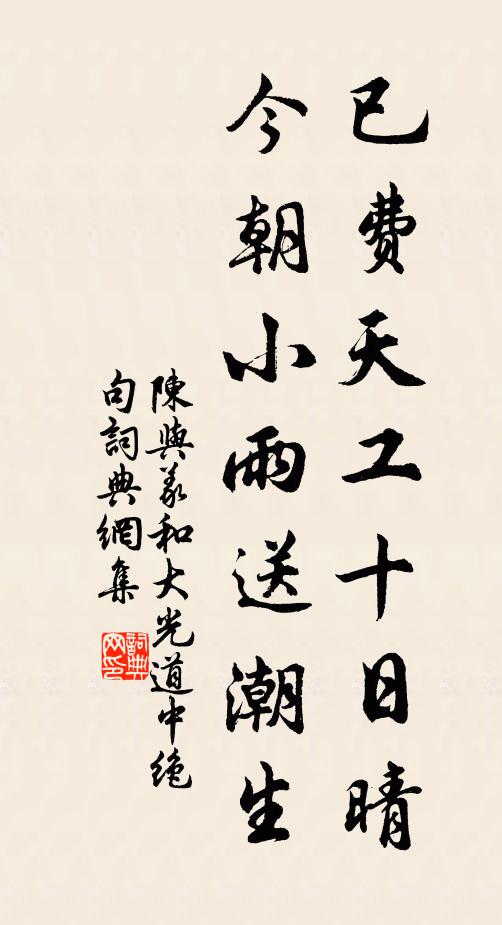 已費天工十日晴
今朝小雨送潮生
陳與義和大光道中絶
句詞典網集
詞典网印